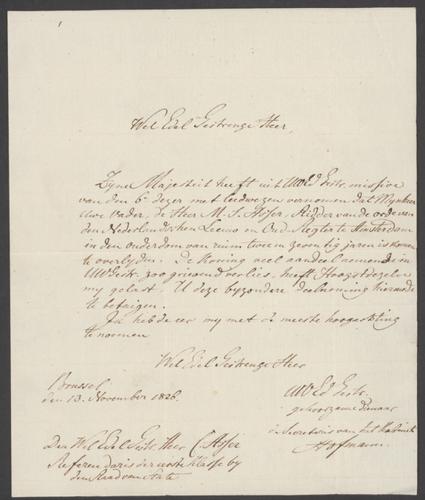 Wel Edel Gestrenge Heer,
Zyne Majesteit heeft uit UWEd Gestr. missive
van den 6e dezer met leedwezen vernomen dat Mynheer
Uwe Vader, de Heer M. S. Asser, Ridder van de orde van
den Nederlandschen Leeuw en Oud Regter te Amsterdam
in den ouderdom van ruim twee en zeventig jaren is komen
te overlyden. De Koning veel aandeel nemende in
UWEd Gestr. zoo grievend verlies, heeft Hoogstdezelve
my gelast, U deze byzondere deelneming hiermede
te betuigen.
Ik heb de eer my met de meeste hoogachting
te noemen
Wel Edel Gestrenge Heer
Brussel
den 13. November 1826.
UWEd Gestr.
gehoorzame dienaar
de Secretaris van het Kabinet
Hofmann.
Den Wel Edel Gestr. Heer C. Asser
Referendaris der eerste klasse by
den Raad van State